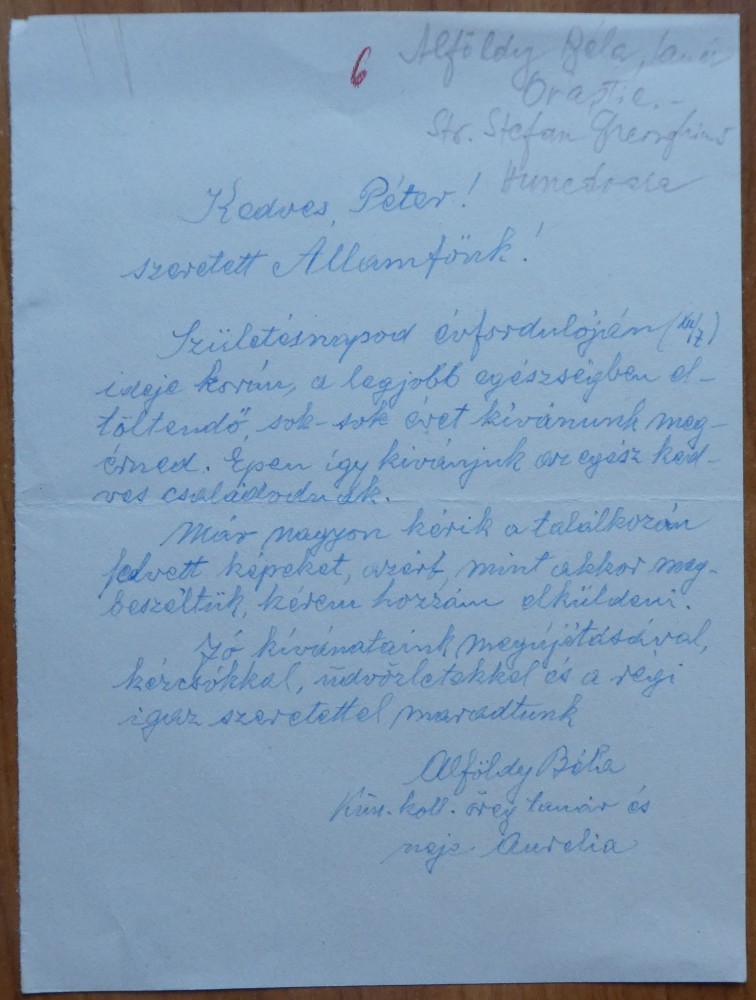 6
Alföldy Béla, tanár
Orăştie.-
Str. Stefan Gheorghiu
Hunedoara
Kedves Péter!
szeretett Államfőnk!
Születésnapod évfordulóján (XII/7)
ideje korán, a legjobb egészségben el-
töltendő, sok-sok évet kívánunk meg-
érned. Épen így kívánjuk az egész ked-
ves családodnak.
Már nagyon kérik a találkozón
felvett képeket, azért, mint akkor meg-
beszéltük, kérem hozzám elküldeni.
Jó kívánataink megújításával,
kézcsókkal, üdvözletekkel és a régi
igaz szeretettel maradtunk
Alföldy Béla
Kún. koll. öreg tanár és
neje Aurelia